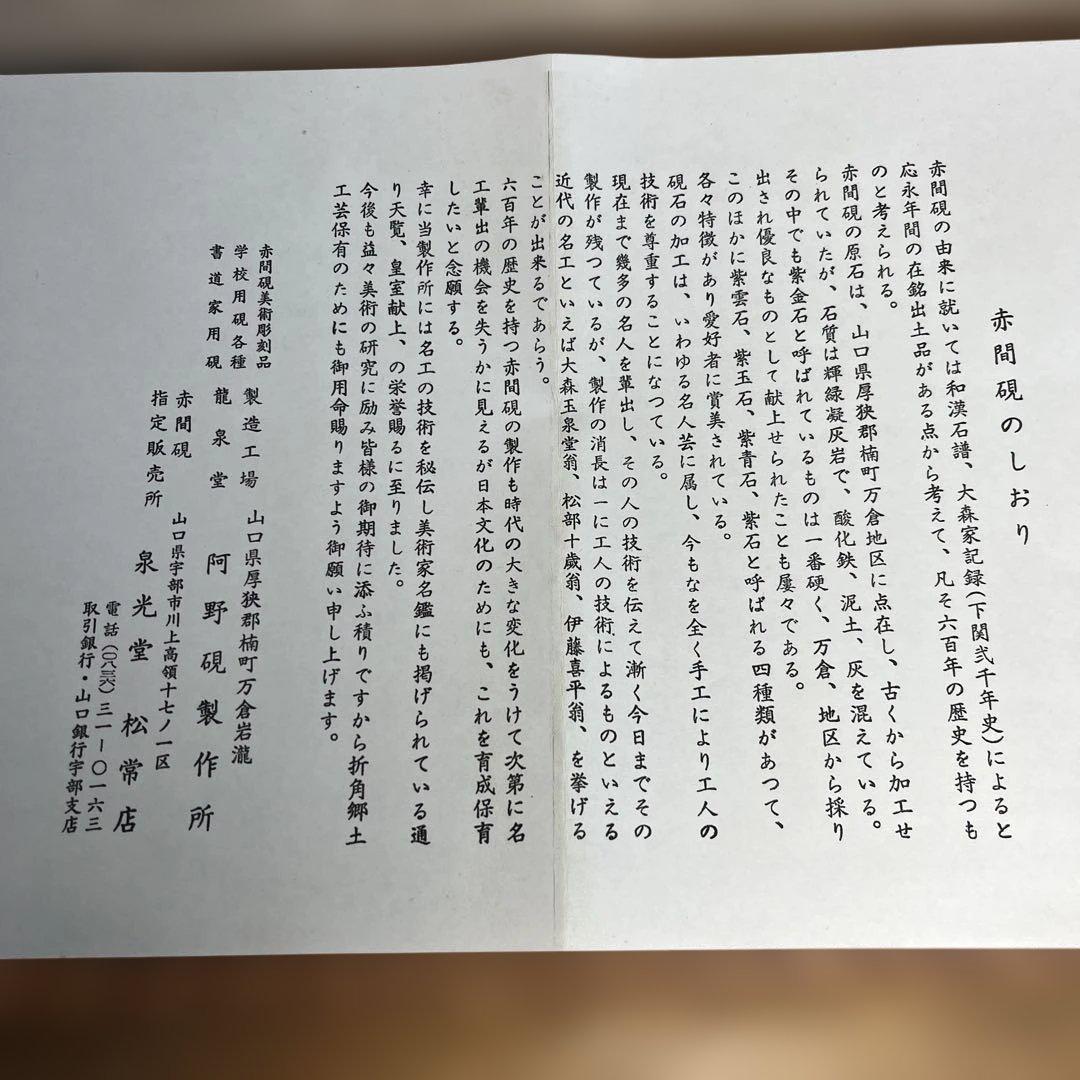 赤間硯のしおり
赤間硯の由来に就いては和漢石譜、大森家記録(下関弐千年史)によると
応永年間の在銘出土品がある点から考えて、凡そ六百年の歴史を持つも
のと考えられる。
赤間硯の原石は、山口県厚狭郡楠町万倉地区に点在し、古くから加工せ
られていたが、石質は輝緑凝灰岩で、酸化鉄、泥土、灰を混えている。
その中でも紫金石と呼ばれているものは一番硬く、万倉、地区から採り
出され優良なものとして献上せられたことも屡々である。
このほかに紫雲石、紫玉石、紫青石、紫石と呼ばれる四種類があつて、
各々特徴があり愛好者に賞美されている。
硯石の加工は、いわゆる名人芸に属し、今もなを全く手工により工人の
技術を尊重することになつている。
現在まで幾多の名人を輩出し、その人の技術を伝えて漸く今日までその
製作が残つているが、製作の消長は一に工人の技術によるものといえる
近代の名工といえば大森玉泉堂翁、松部十歳翁、伊藤喜平翁、を挙げる
ことが出来るであらう。
六百年の歴史を持つ赤間硯の製作も時代の大きな変化をうけて次第に名
工輩出の機会を失うかに見えるが日本文化のためにも、これを育成保育
したいと念願する。
幸に当製作所には名工の技術を秘伝し美術家名鑑にも掲げられている通
り天覧、皇室献上、の栄誉賜るに至りました。
今後も益々美術の研究に励み皆様の御期待に添ふ積りですから折角郷土
工芸保有のためにも御用命賜りますよう御願い申し上げます。
赤間硯美術彫刻品
学校用硯各種
書道家用硯
製造工場 山口県厚狭郡楠町万倉岩瀧
龍泉堂 阿野硯製作所
赤間硯
指定販売所
山口県宇部市川上高領十七ノ一区
泉光堂 松常店
電話(〇八三六)三一ー〇一六三
取引銀行・山口銀行宇部支店